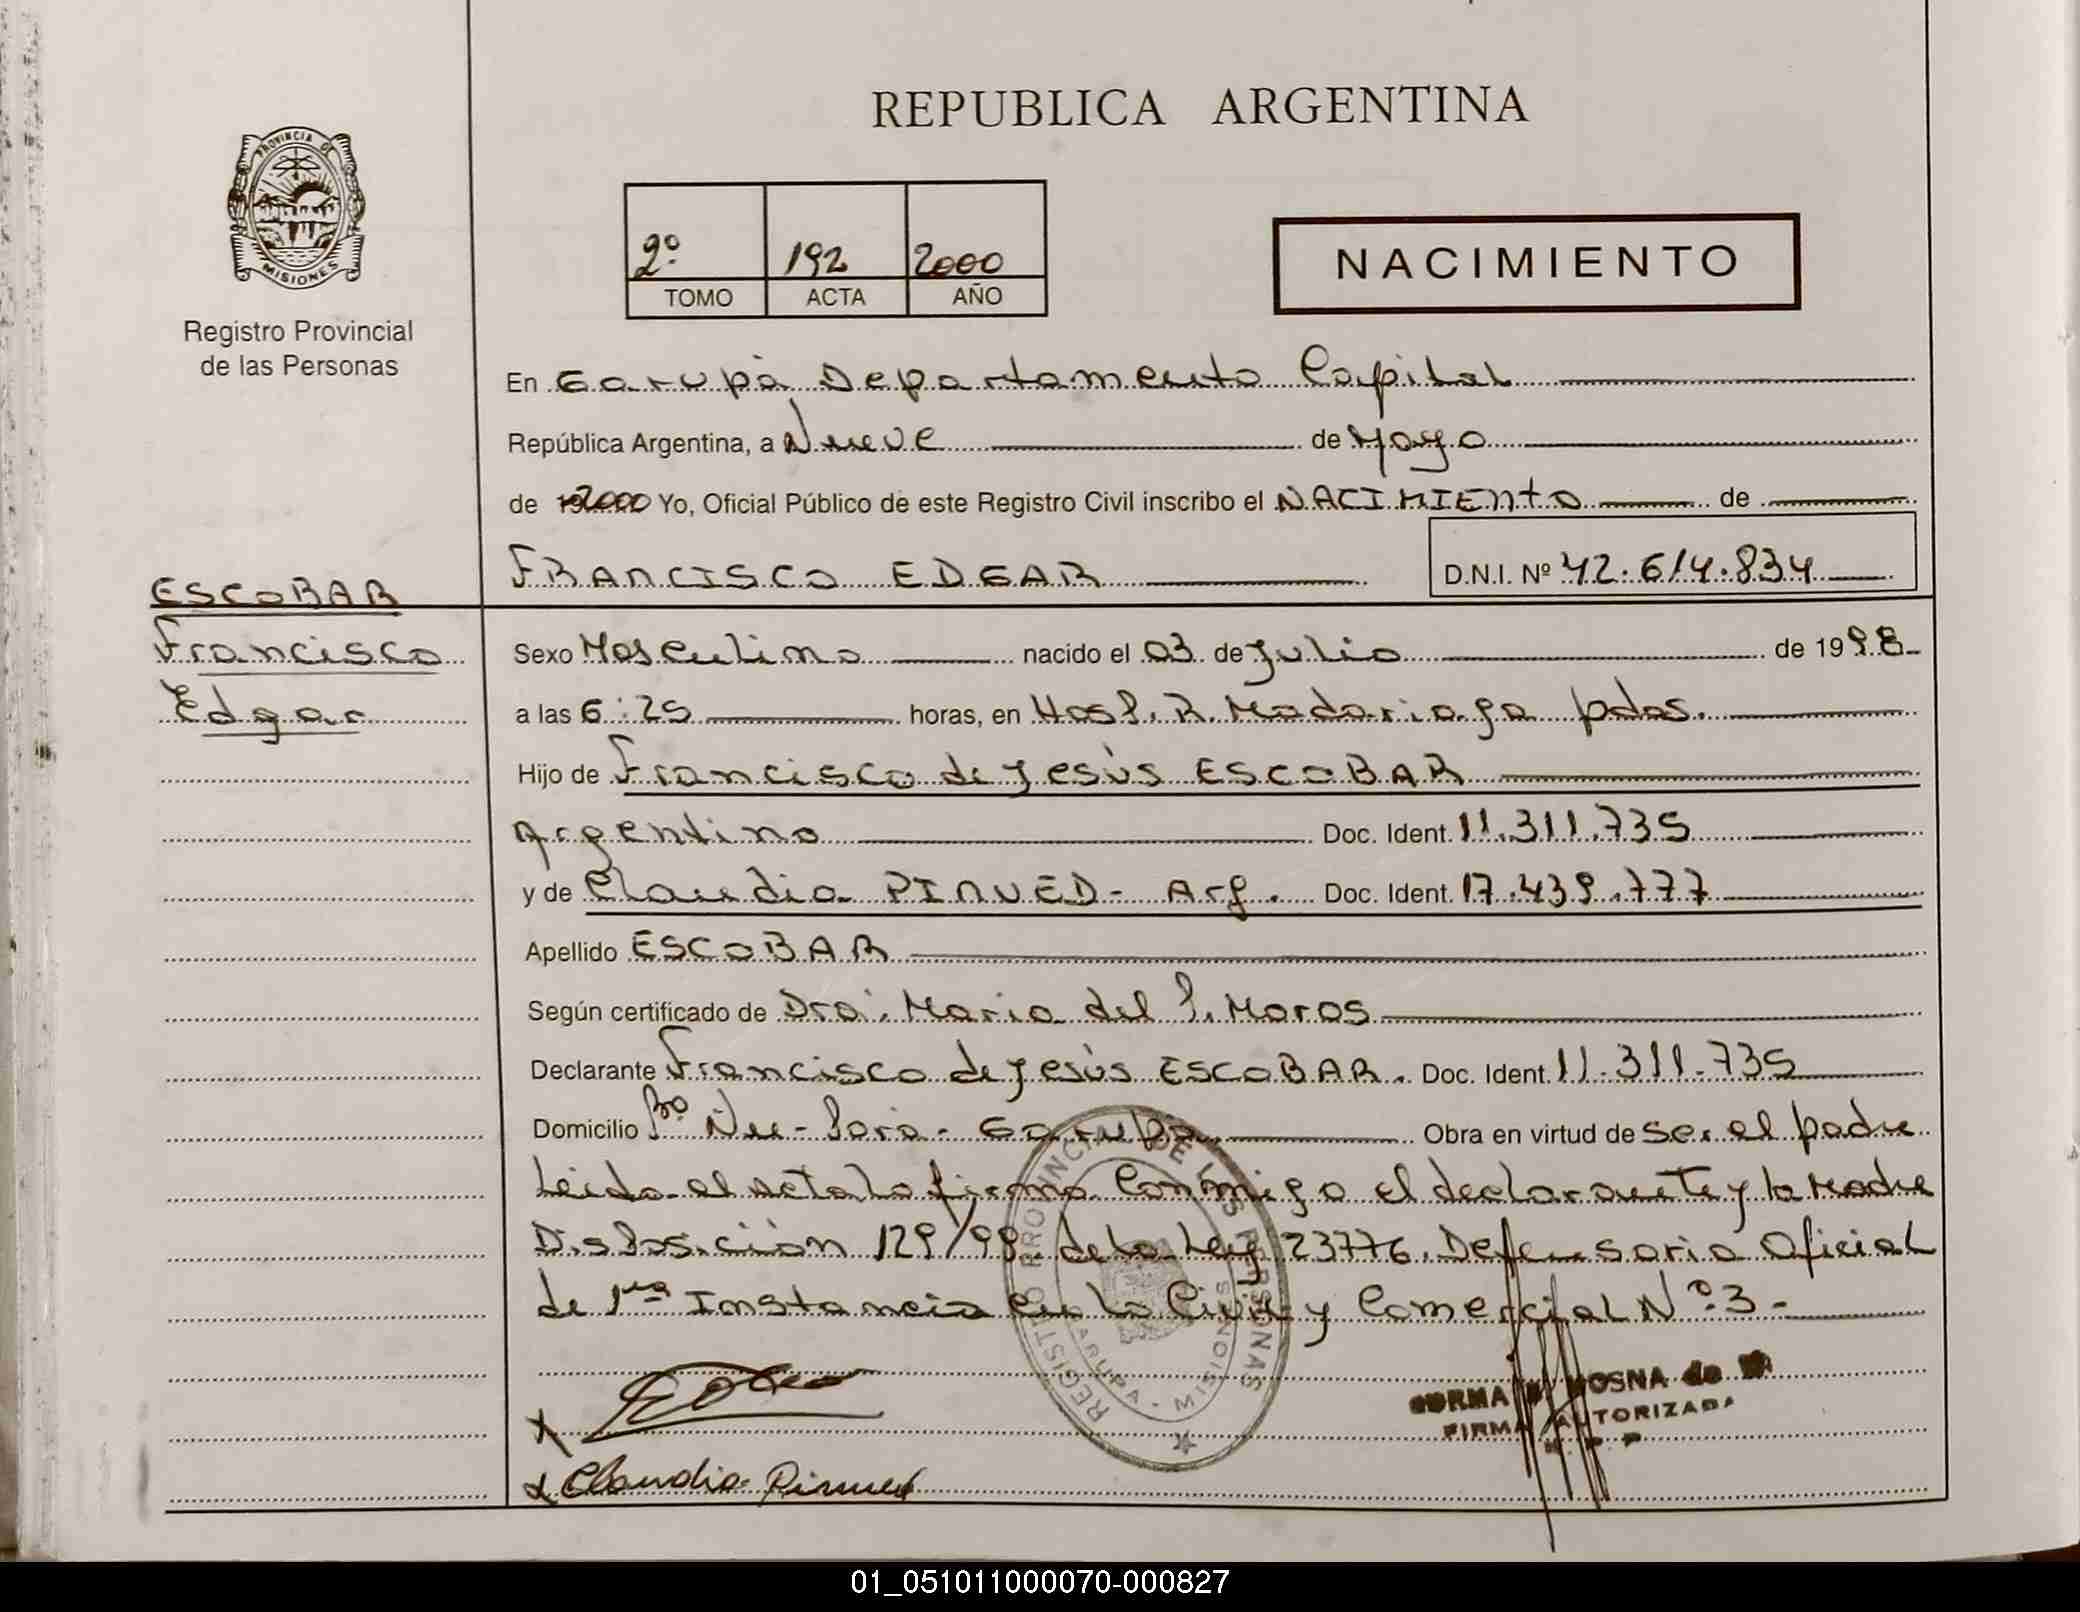 REPUBLICA ARGENTINA
PROVINCIA DE
MISIONES
Registro Provincial
de las Personas
2º 192 2000
TOMO ACTA AÑO
NACIMIENTO
En Garupá Departamento Capital
República Argentina, a Nueve de Mayo
de 2000 Yo, Oficial Público de este Registro Civil inscribo el NACIMIENTO de
FRANCISCO EDGAR D.N.I. Nº 42.614.834
ESCOBAR
Francisco
Edgar
Sexo Masculino nacido el 03 de Julio de 1998-
a las 6:25 horas, en Hosp. R. Madariaga pdas.
Hijo de Francisco de Jesús ESCOBAR
Argentino Doc. Ident. 11.311.735
y de Claudia PINUED- Arg. Doc. Ident. 17.439.777
Apellido ESCOBAR
Según certificado de Dra. Maria del P. Moros
Declarante Francisco de Jesús ESCOBAR. Doc. Ident. 11.311.735
Domicilio Bº Ñu-Porá- Garupá. Obra en virtud de ser el padre
Leida el acta la firma conmigo el declarante y la Madre
Disposición 129/98. de la Ley 23776. Defensoria Oficial
de 1ra Instancia en lo Civil y Comercial Nº 3-
REGISTRO PROVINCIAL DE LAS PERSONAS
GARUPA - MISIONES
NORMA OSNA de
FIRMA AUTORIZADA
X
X Claudia Pinued
01_051011000070-000827